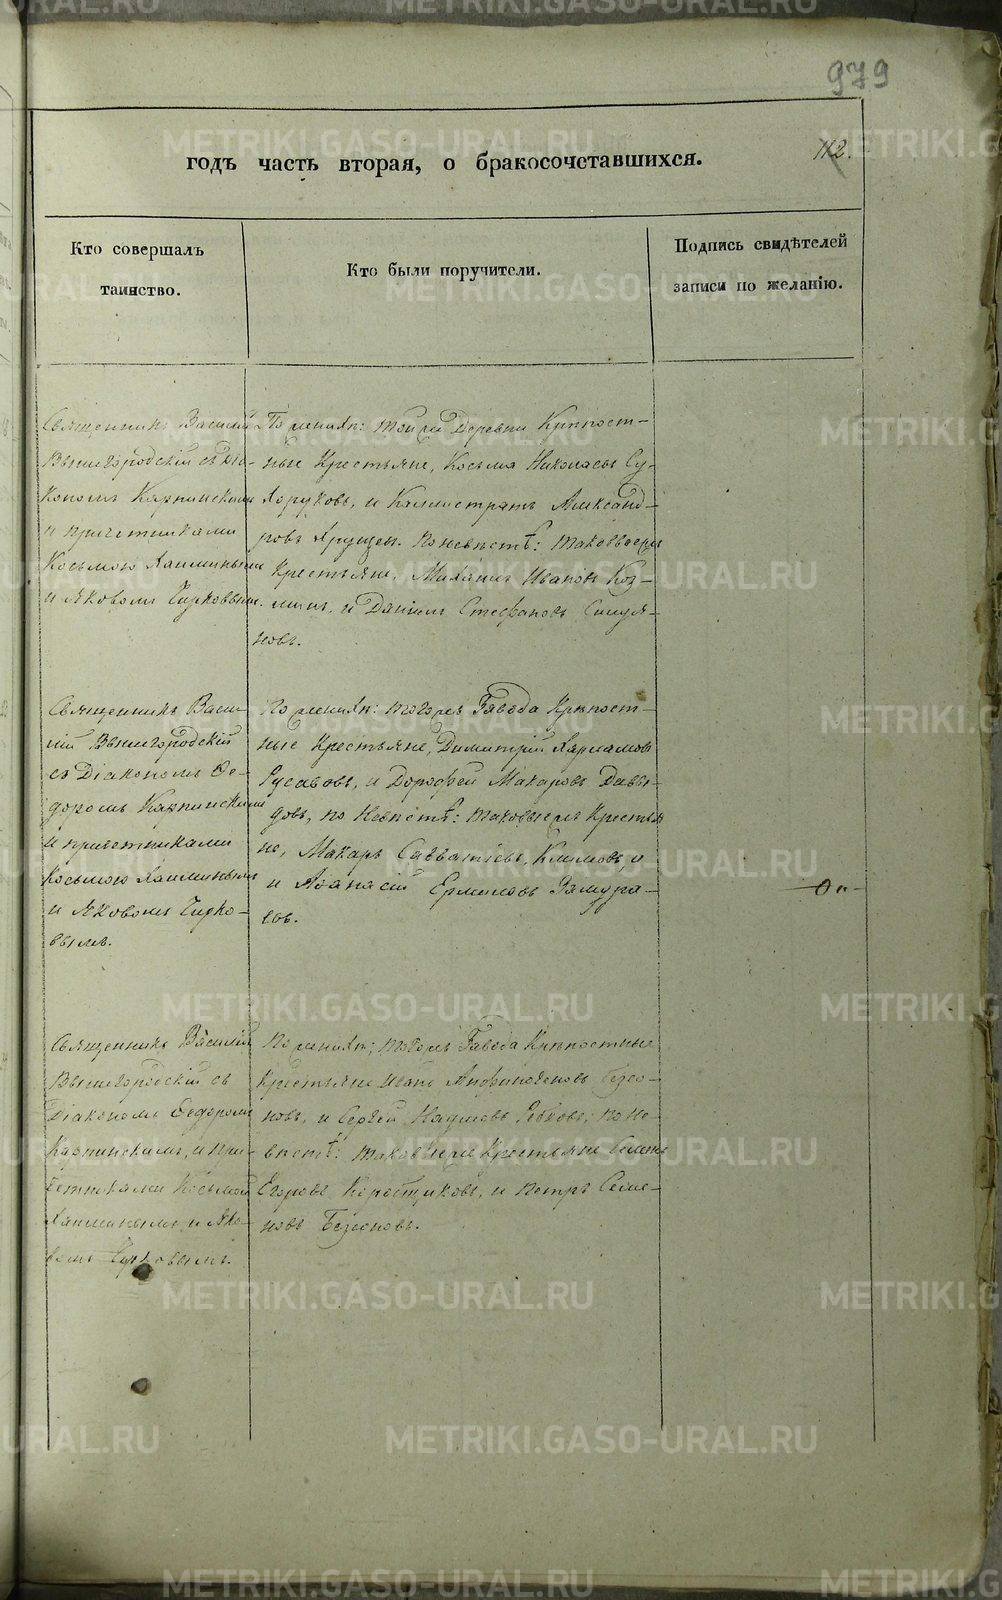 979
112.
годъ часть вторая, о бракосочетавшихся.
Кто совершалъ
таинство.
Кто были поручители.
Подпись свидѣтелей
записи по желанію.
Священникъ Василій
Вышегородскій съ Діа-
кономъ Карпинскимъ
и причетниками
Косьмою Хаминымъ
и Яковомъ Чирковымъ.
По женихѣ: той же Деревни Крѣпост-
ные Крестьяне, Косьма Николаевъ Су-
хоруковъ, и Каллистратъ Александ-
ровъ Хрущев. По невѣстѣ: таковыежъ
Крестьяне, Михаилъ Ивановъ Коз-
и Даніилъ Стефановъ
новъ.
Священникъ Васи-
лій Вышегородскій
съ Діакономъ Ѳе-
доромъ Карпинскимъ
и причетниками
Косьмою Хаминымъ
и Яковомъ Чирко-
вымъ.
По женихѣ: тогожъ Завода Крѣпост-
ные Крестьяне, Димитрій Харламов
Русаковъ, и Дорофей Макаровъ Давы-
довъ, по Невѣстѣ: таковыежъ Крестья
не, Макаръ Савватіевъ, Климовъ, и
и Аѳанасій Ермиловъ Замура-
евъ.
Священникъ Василій
Вышегородскій съ
Діакономъ Ѳедоромъ
Карпинскимъ, и при-
четниками Косьмой
Хаминымъ и Яко-
вомъ Чирковымъ.
По женихѣ; тогожъ Завода Крѣпостные
Крестьяне Иванъ Анфиногеновъ Безсо-
новъ, и Сергей Наумовъ Рябковъ; по Не-
вѣстѣ: таковыежъ Крестьяне Семенъ
Егоровъ Коростиковъ, и Петръ Семе-
новъ Безсоновъ.
METRIKI.GASO-URAL.RU